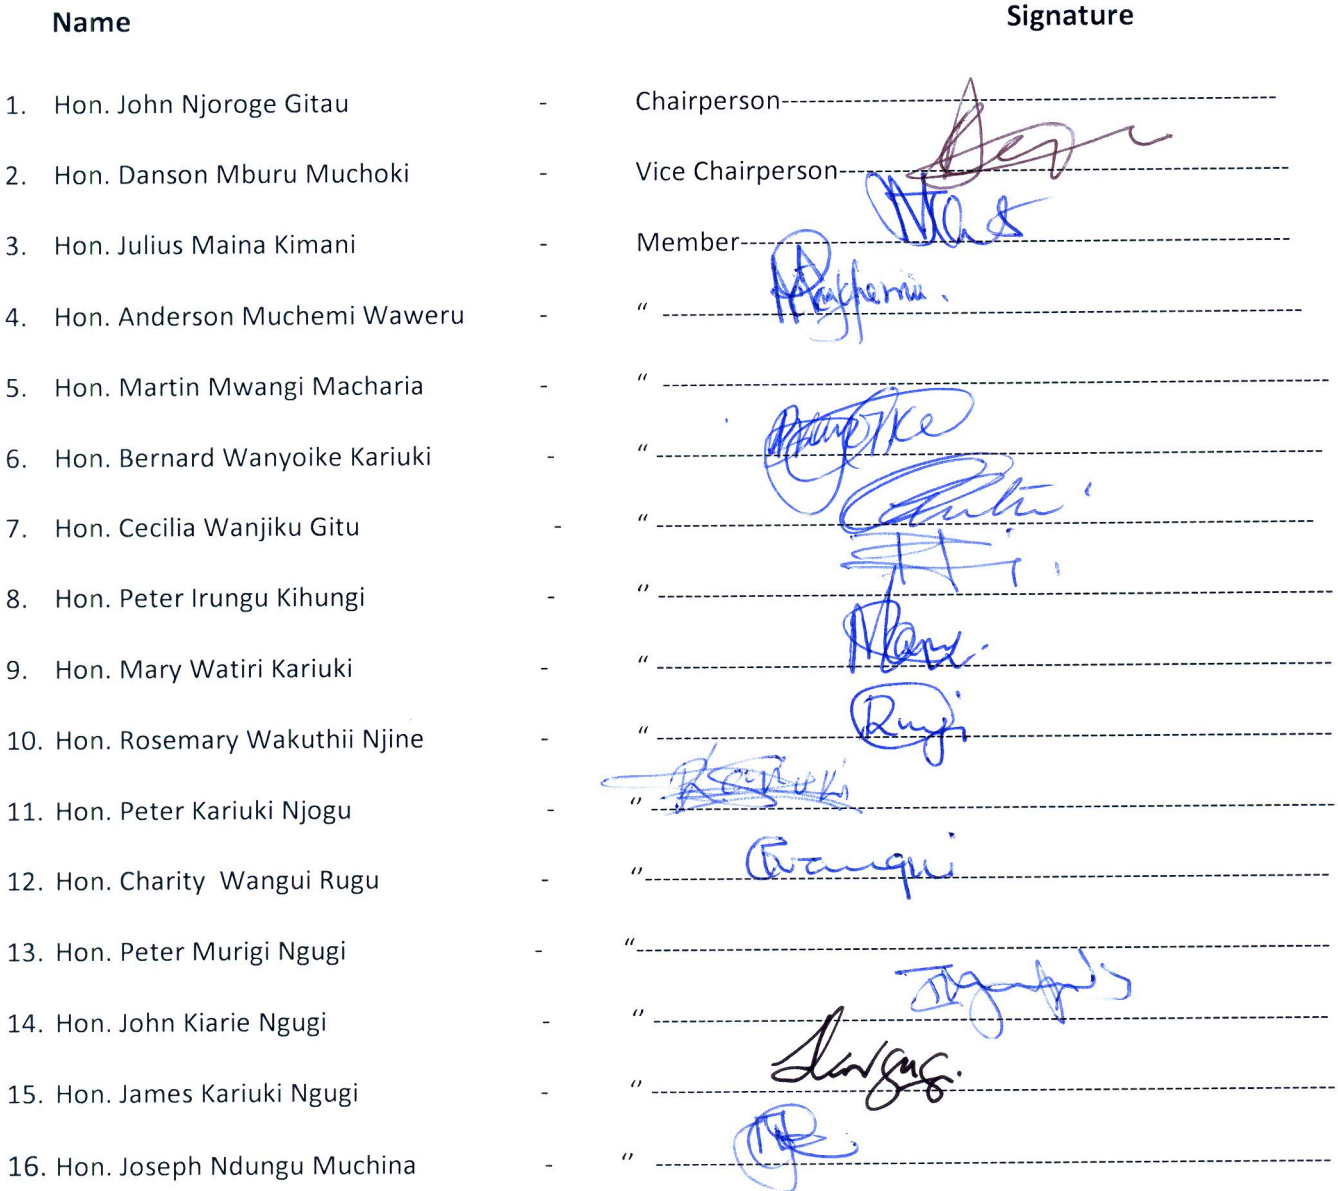 Name Signature
1. Hon. John Njoroge Gitau - Chairperson--------------------
2. Hon. Danson Mburu Muchoki - Vice Chairperson--------------------
3. Hon. Julius Maina Kimani - Member--------------------
4. Hon. Anderson Muchemi Waweru - “ --------------------
5. Hon. Martin Mwangi Macharia - “ --------------------
6. Hon. Bernard Wanyoike Kariuki - “ --------------------
7. Hon. Cecilia Wanjiku Gitu - “ --------------------
8. Hon. Peter Irungu Kihungi - “ --------------------
9. Hon. Mary Watiri Kariuki - “ --------------------
10. Hon. Rosemary Wakuthii Njine - “ --------------------
11. Hon. Peter Kariuki Njogu - “ --------------------
12. Hon. Charity Wangui Rugu - “ --------------------
13. Hon. Peter Murigi Ngugi - “ --------------------
14. Hon. John Kiarie Ngugi - “ --------------------
15. Hon. James Kariuki Ngugi - “ --------------------
16. Hon. Joseph Ndungu Muchina - “ --------------------